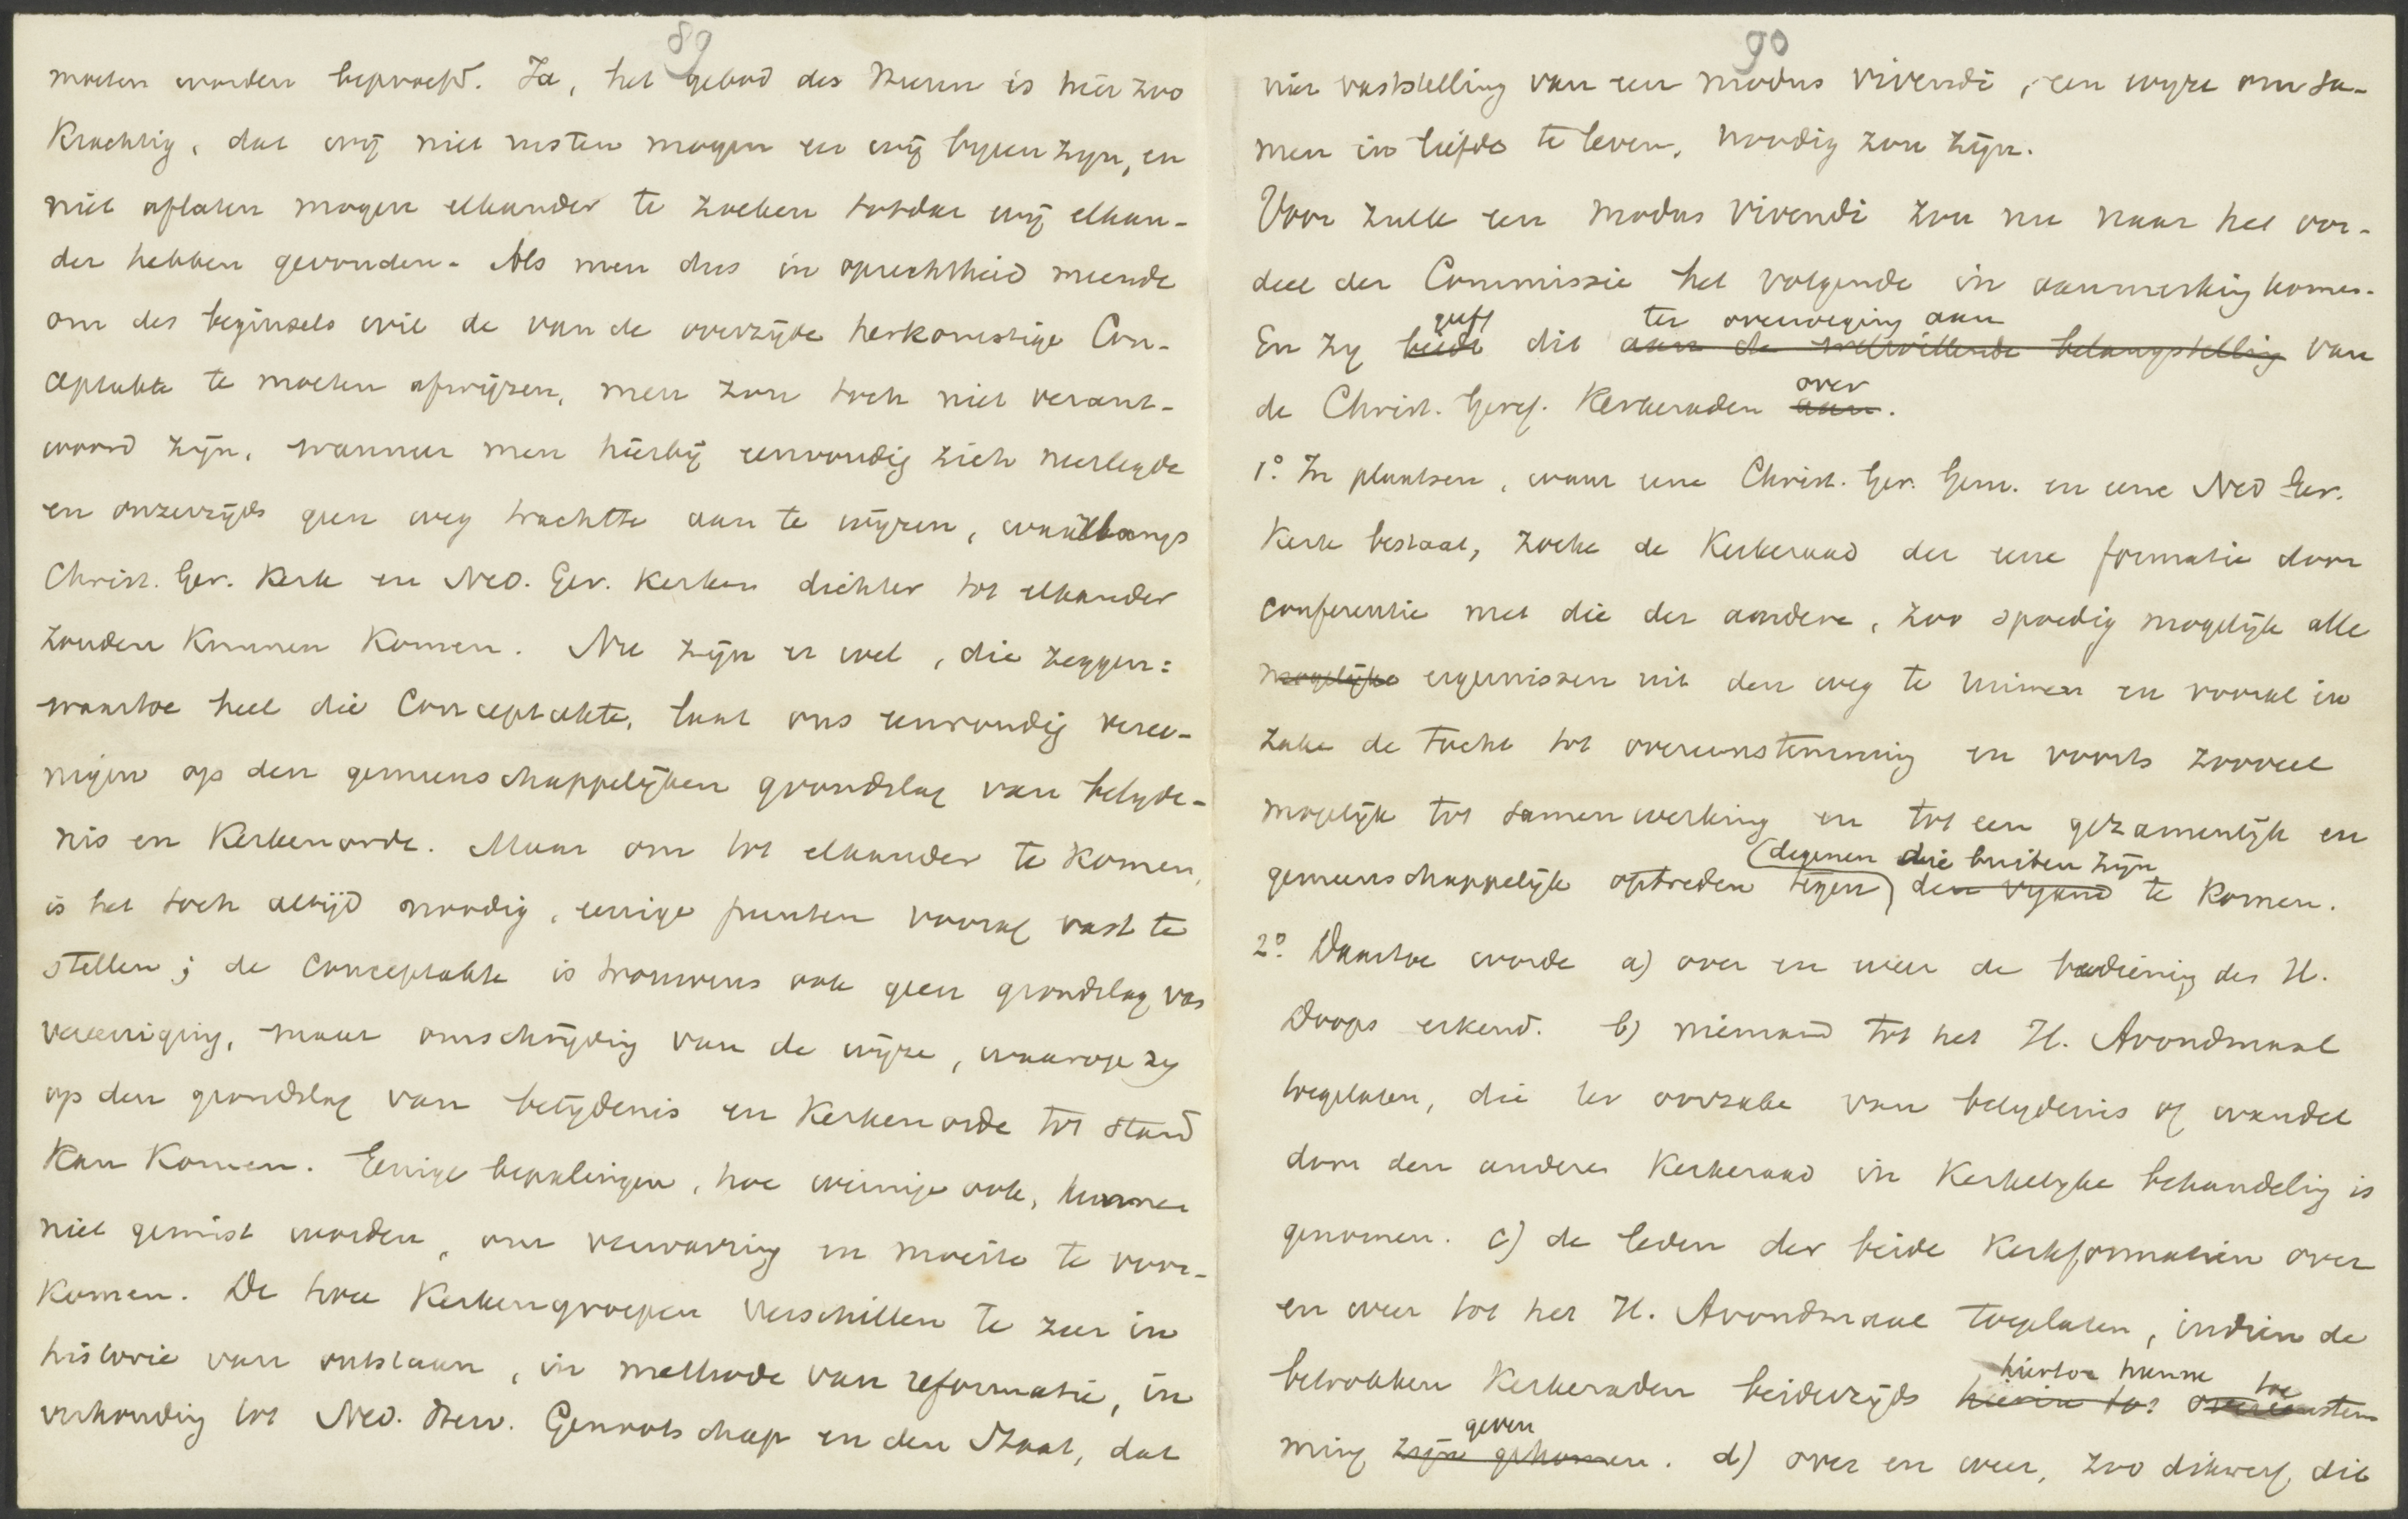 89
moeten worden beproefd. Ja, het gebod des Heeren is hier zoo
krachtig, dat wij niet rusten mogen eer wij byeen zyn, en
niet aflaten mogen elkander te zoeken totdat wij elkan-
der hebben gevonden. Als men dus in oprechtheid meende
om des beginsels wil de van de overzijde herkomstige Con-
ceptakte te moeten afwijzen, men zou toch niet verant-
woord zijn, wanneer men hierbij eenvoudig zich neerlegde
en onzerzijds geen weg trachtte aan te wijzen, waarlangs
Christ. Ger. Kerk en Ned. Ger. Kerken dichter tot elkander
zouden kunnen komen. Nu zijn er wel, die zeggen:
waartoe heel die Conceptakte, laat ons eenvoudig veree-
nigen op den gemeenschappelijken grondslag van belyde-
nis en Kerkenorde. Maar om tot elkander te komen,
is het toch altijd noodig, eenige punten vooraf vast te
stellen; de Conceptakte is trouwens ook geen grondslag van
vereeniging, maar omschrijving van de wijze, waarop zy
op den grondslag van belijdenis en Kerkenorde tot stand
kan komen. Eenige bepalingen, hoe weinige ook, kunnen
niet gemist worden, om verwarring en moeite te voor-
komen. De twee Kerkengroepen verschillen te zeer in
historie van ontstaan, in methode van reformatie, in
verhouding tot Ned. Herv. Genootschap en den Staat, dat
90
niet vaststelling van een modus vivendi, een wyze om sa-
men in liefde te leven, noodig zou zijn.
Voor zulk een modus vivendi zou nu naar het oor-
deel der Commissie het volgende in aanmerking komen.
geeft ter overweging aan
En zy biedt dit aan de welwillende belangstelling van
over
de Christ. Geref. Kerkeraden aan.
1º. In plaatsen, waar eene Christ. Ger. Gem. en eene Ned Ger.
Kerk bestaat, zoeke de Kerkeraad der eene formatie door
conferentie met die der andere, zoo spoedig mogelijk alle
mogelijke ergernissen uit den weg te ruimen en vooral in
zake de tucht tot overeenstemming en voorts zooveel
mogelijk tot samenwerking en tot een gezamenlijk en
degenen die buiten zijn
gemeenschappelijk optreden tegen den vyand te komen.
2º. Daartoe worde a) over en weer de bediening des H.
Doops erkend. b) niemand tot het H. Avondmaal
toegelaten, die ter oorzake van belydenis of wandel
door den anderen Kerkeraad in Kerkelyke behandeling is
genomen. c) de leden der beide Kerkformatien over
en weer tot het H. Avondmaal toegelaten, indien de
hiertoe hunne toe
betrokken Kerkeraden beiderzijds hierin tot overeenstem
geven
ming zijn gekomen. d) over en weer, zoo dikwerf dit